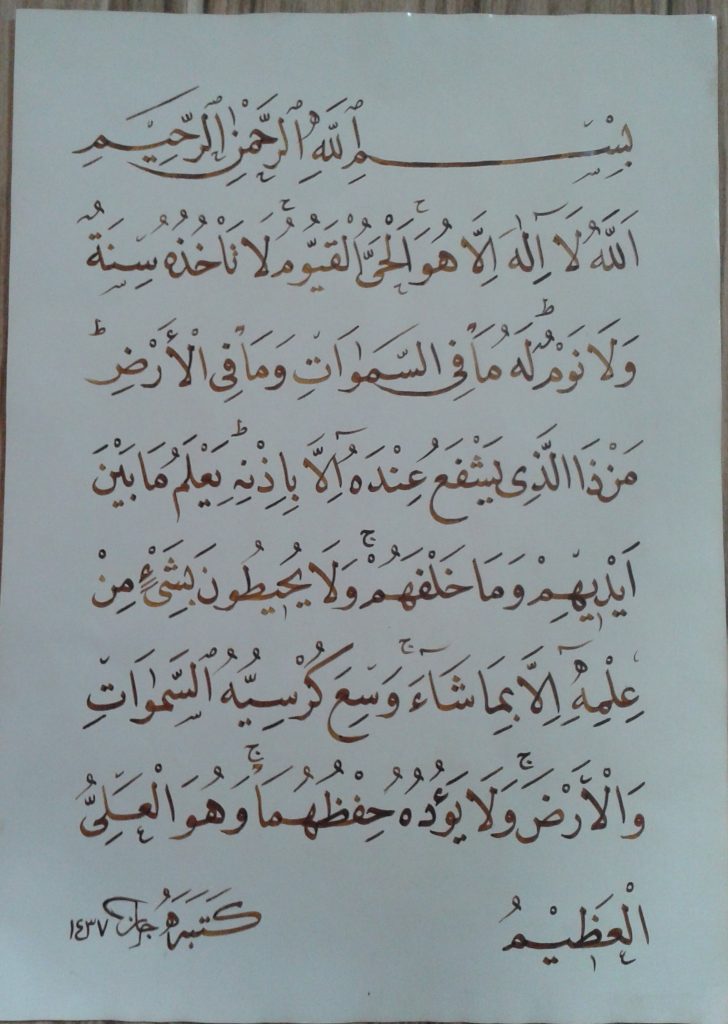 بِسْمِ ٱللَّهِ ٱلرَّحْمٰنِ ٱلرَّحِيمِ
اَللَّهُ لَا اِلٰهَ اِلَّا هُوَ اَلْحَىُّ الْقَيُّومُ لَا تَاْخُذُهُ سِنَةٌ
وَلَا نَوْمٌ لَهُ مَا فِى السَّمٰوَاتِ وَمَا فِى الْأَرْضِ
مَنْ ذَا الَّذِى يَشْفَعُ عِنْدَهُ اِلَّا بِاِذْنِهِ يَعْلَمُ مَا بَيْنَ
اَيْدِيهِمْ وَمَا خَلْفَهُمْ وَلَا يُحِيطُونَ بِشَىْءٍ مِنْ
عِلْمِهِ اِلَّا بِمَا شَاءَ وَسِعَ كُرْسِيُّهُ ٱلسَّمٰوَاتِ
وَالْأَرْضَ وَلَا يَؤُدُهُ حِفْظُهُمَا وَهُوَ الْعَلِىُّ
الْعَظِيمُ
كَتَبَهُ ١٤٣٧